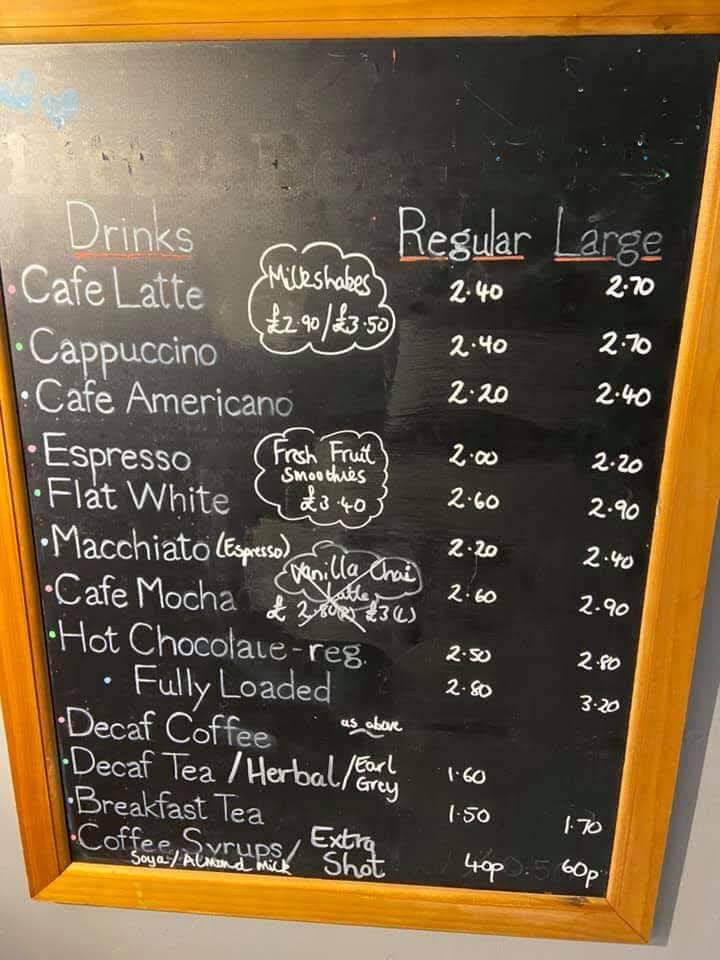 Drinks Regular Large
Cafe Latte 2.40 2.70
Milkshakes
£2.90/£3.50
Cappuccino 2.40 2.70
Cafe Americano 2.20 2.40
Espresso 2.00 2.20
Fresh Fruit
Smoothies
£3.40
Flat White 2.60 2.90
Macchiato (Espresso) 2.20 2.40
Vanilla Chai
Latte
£2.80(R) £3(L)
Cafe Mocha 2.60 2.90
Hot Chocolate-reg. 2.50 2.80
Fully Loaded 2.80 3.20
Decaf Coffee as above
Decaf Tea/Herbal/Earl Grey 1.60
Breakfast Tea 1.50 1.70
Coffee Syrups/Extra Shot 40p 60p
Soya/Almond milk